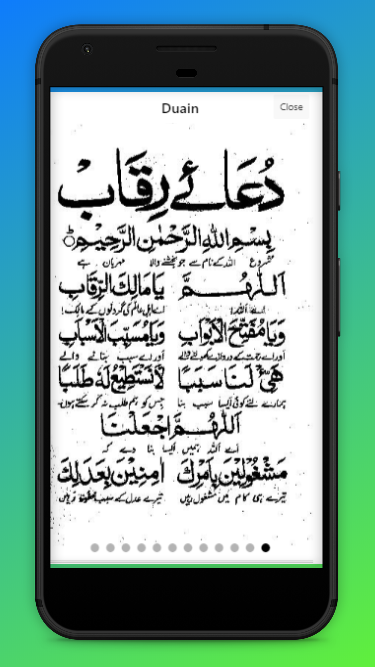 Duain
Close
دُعَائے رِقَاب
بِسْمِ اللهِ الرَّحْمٰنِ الرَّحِيْمِ
شروع اللہ کے نام سے جو بخشنے والا مہربان ہے
اَللّٰهُمَّ يَا مَالِكَ الرِّقَابِ
اے اللہ! اے اہل عالم کی گردنوں کے مالک!
وَيَا مُفَتِّحَ الْاَبْوَابِ وَيَا مُسَبِّبَ الْاَسْبَابِ
اور اے سبب بنانے والے
هَيِّئْ لَنَا سَبَبًا لَا نَسْتَطِيْعُ لَهٗ طَلَبًا
ہمارے لئے کوئی ایسا سبب بنا جس کو ہم طلب نہ کر سکتے ہوں۔
اَللّٰهُمَّ اجْعَلْنَا
اے اللہ ہمیں ایسا بنا دے کہ
مَشْغُوْلِيْنَ بِاَمْرِكَ اٰمِنِيْنَ بِعَدْلِكَ
تیرے ہی کام میں مشغول رہیں تیرے عدل کے سبب